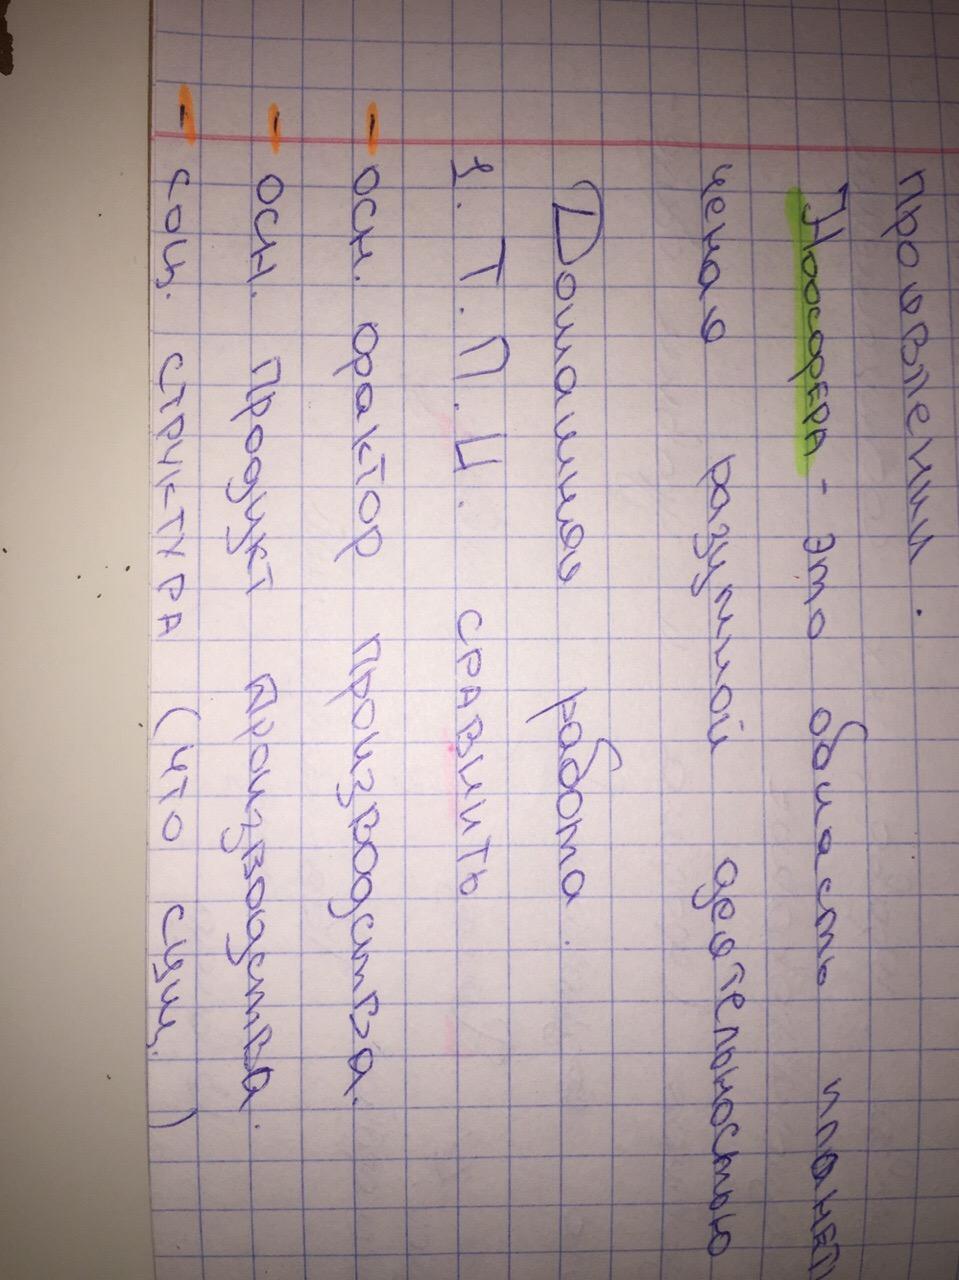 проявлении.
Ноосфера - это область планет
ченая разумной деятельностью
Домашняя работа.
1. Т.П.Ц. сравнить
- осн. фактор производства.
- осн. продукт производства.
- соц. структура (что сущ. )